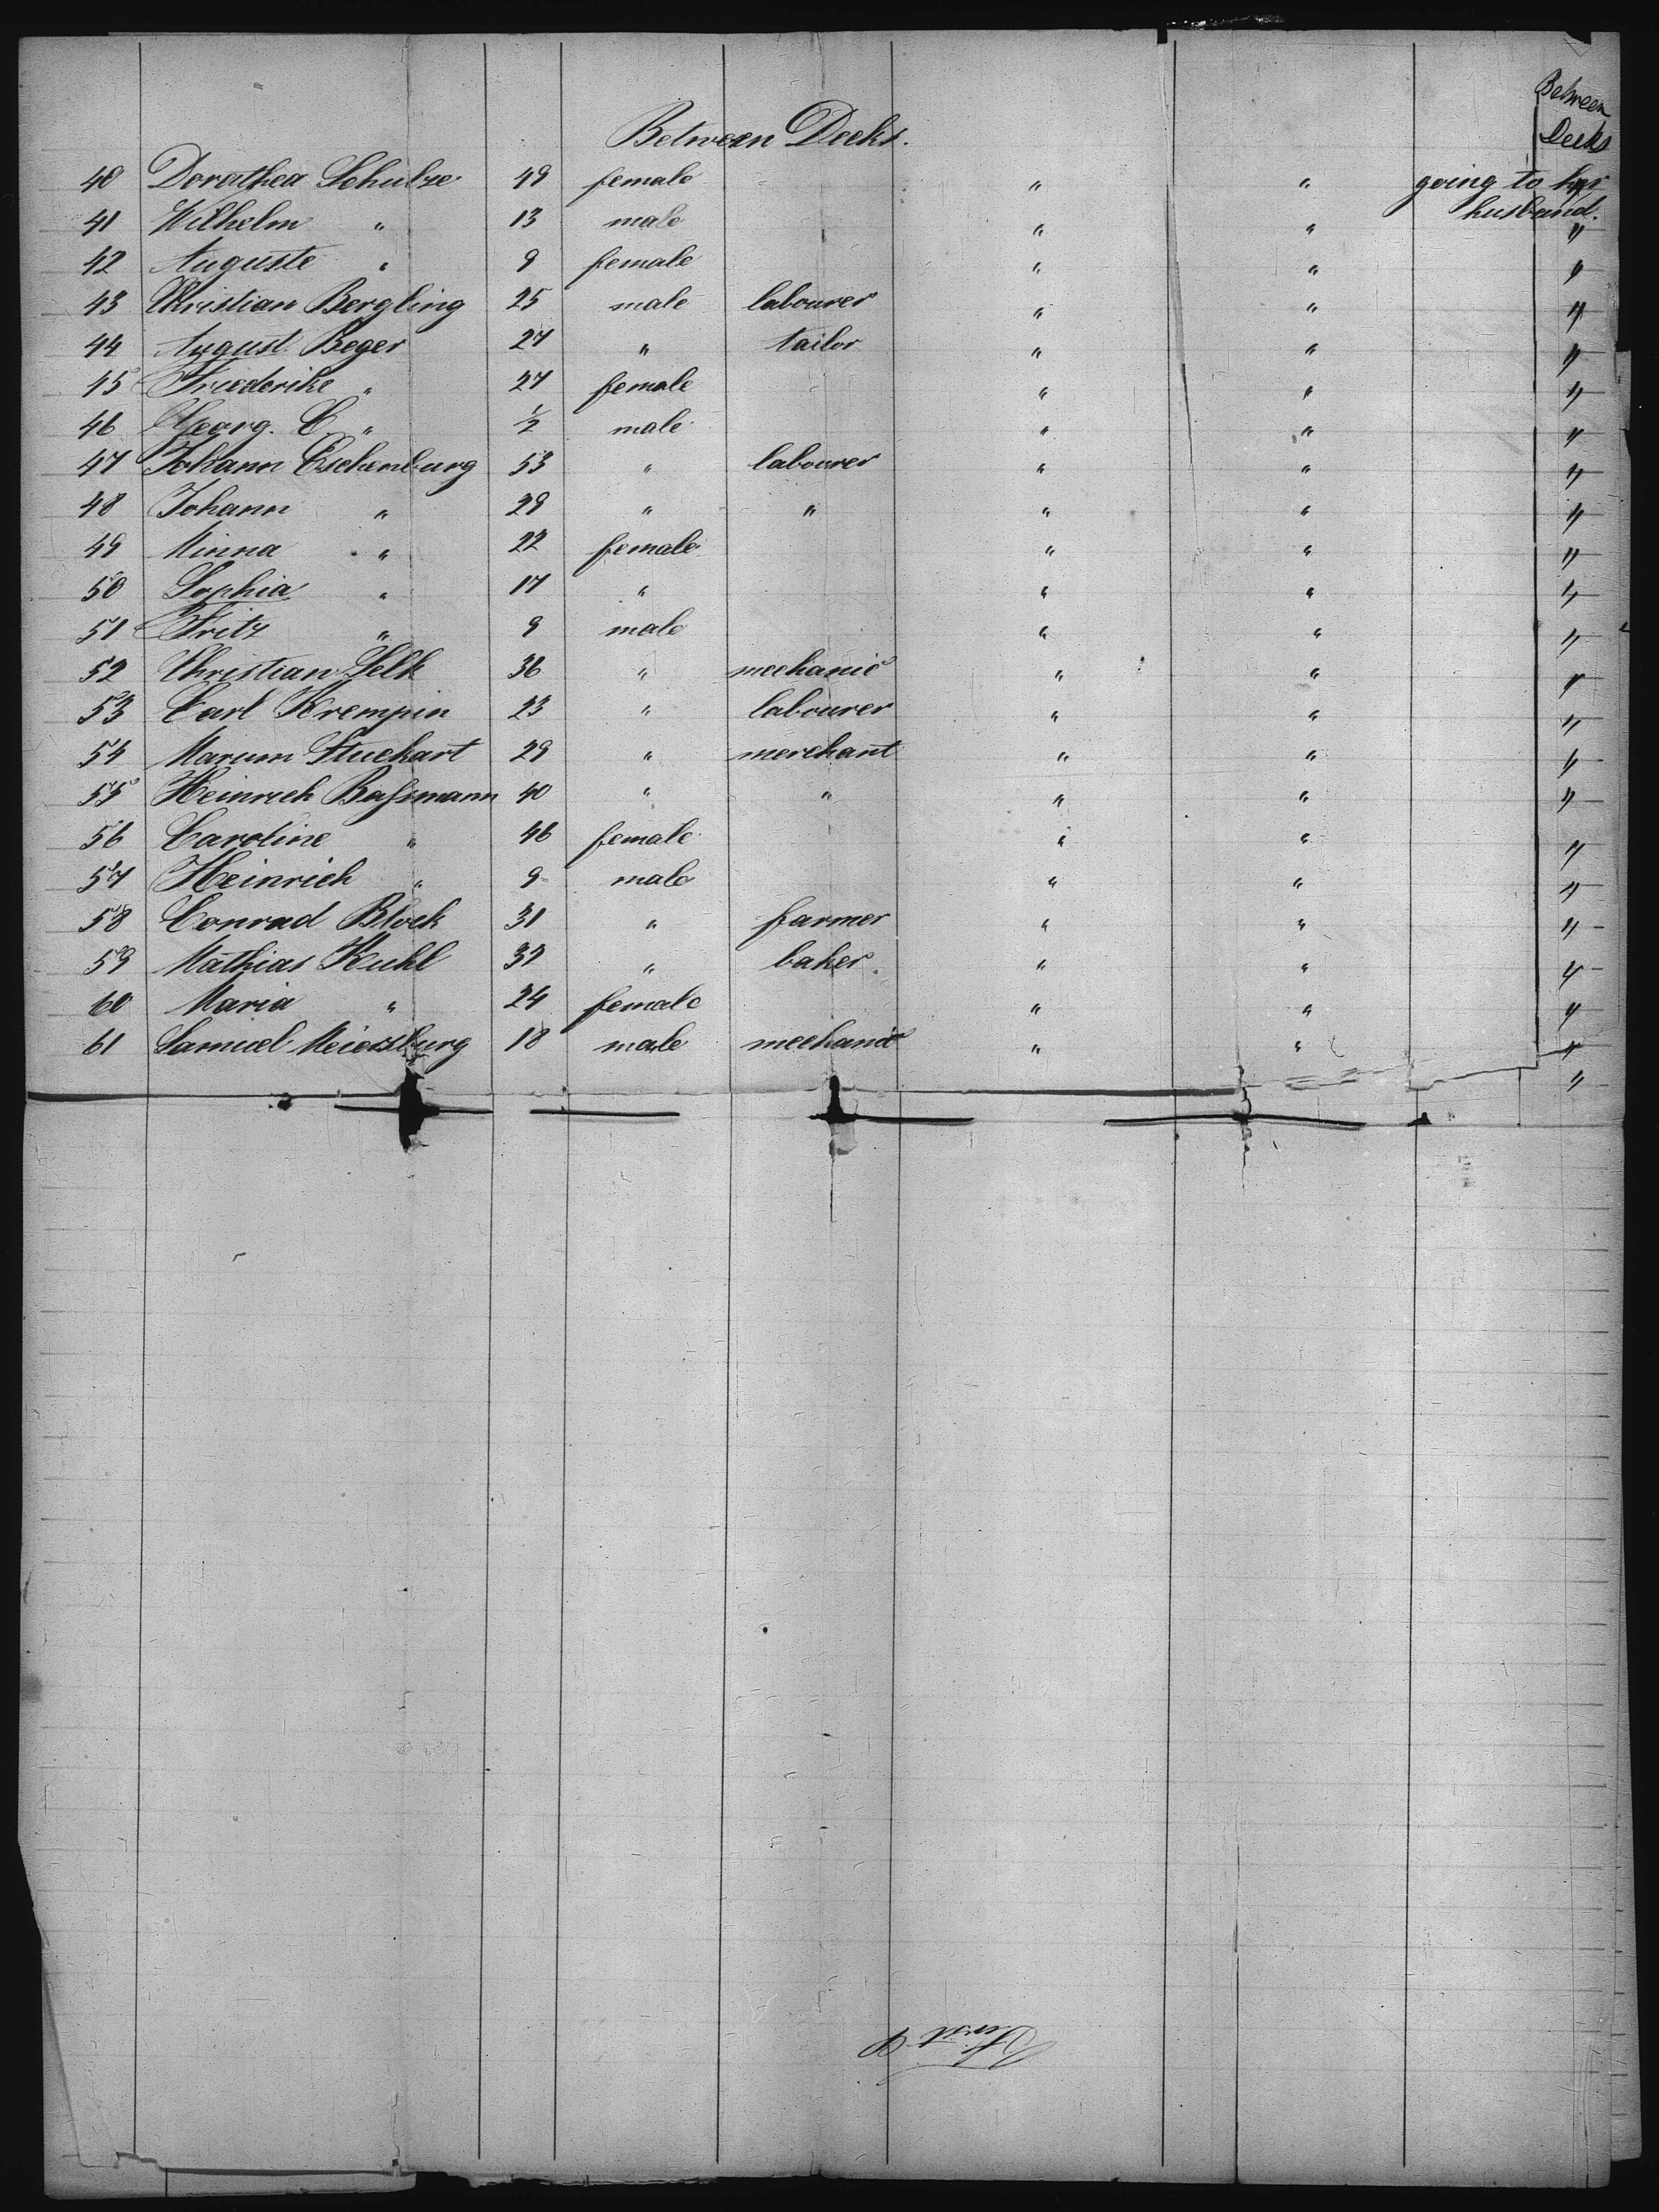 Between Decks.
Between
Decks
40 Dorathea Schulze 49 female " " going to her
husband.
41 Wilhelm " 13 male " " "
42 Auguste " 9 female " " "
43 Christian Bergling 25 male labourer " " "
44 August Beger 27 " tailor " " "
45 Friederike " 27 female " " "
46 Georg. C " ½ male " " "
47 Johann Eschenburg 53 " labourer " " "
48 Johann " 29 " " " " "
49 Minna " 22 female " " "
50 Sophia " 17 " " " "
51 Fritz " 9 male " " "
52 Christian Selk 36 " mechanic " " "
53 Carl Krempin 23 " labourer " " "
54 Marum Stuckart 29 " merchant " " "
55 Heinrich Baſsmann 40 " " " " "
56 Caroline " 46 female " " "
57 Heinrich " 9 male " " "
58 Conrad Block 31 " farmer " " "
59 Mathias Kuhl 32 " baker. " " "
60 Maria " 24 female " " "
61 Samuel 18 male mechanic " " "
"